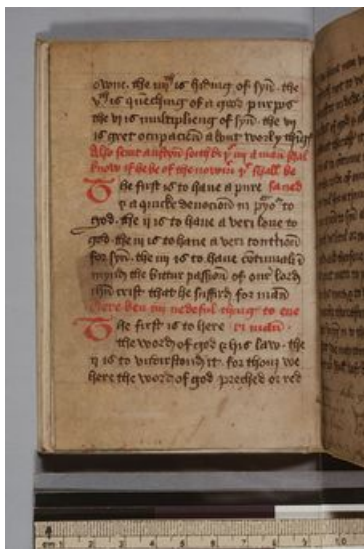 owne. the iiijth is hiding of syn̄. the
vth is quēching of a good purpos
the vi is multiplieng of syn̄. the vij
is gret ocupaciōn about worly thīgꝭ
Also seint austyn seith bi yͤ iij a man shal
know if he be of the noumbre yͭ shall be
The first is to haue a pure saued
& a quicke deuocioūn in pͣyoʳ to
god. the ij is to haue a veri loue to
god. the iij is to haue a veri contricioūn
for syn̄. the iiij is to haue cōtinualli
mynd the bittur passioūn of our lord
ihū crist that he suffrid for mān
There ben iij nedeful thingꝭ to eue
The first is to here ri man.
the word of god & his law. the
ij is to vndirstond it. for thouȝ we
here the word of god preched or red
cm 1 2 3 4 5 6 7 8 9 10